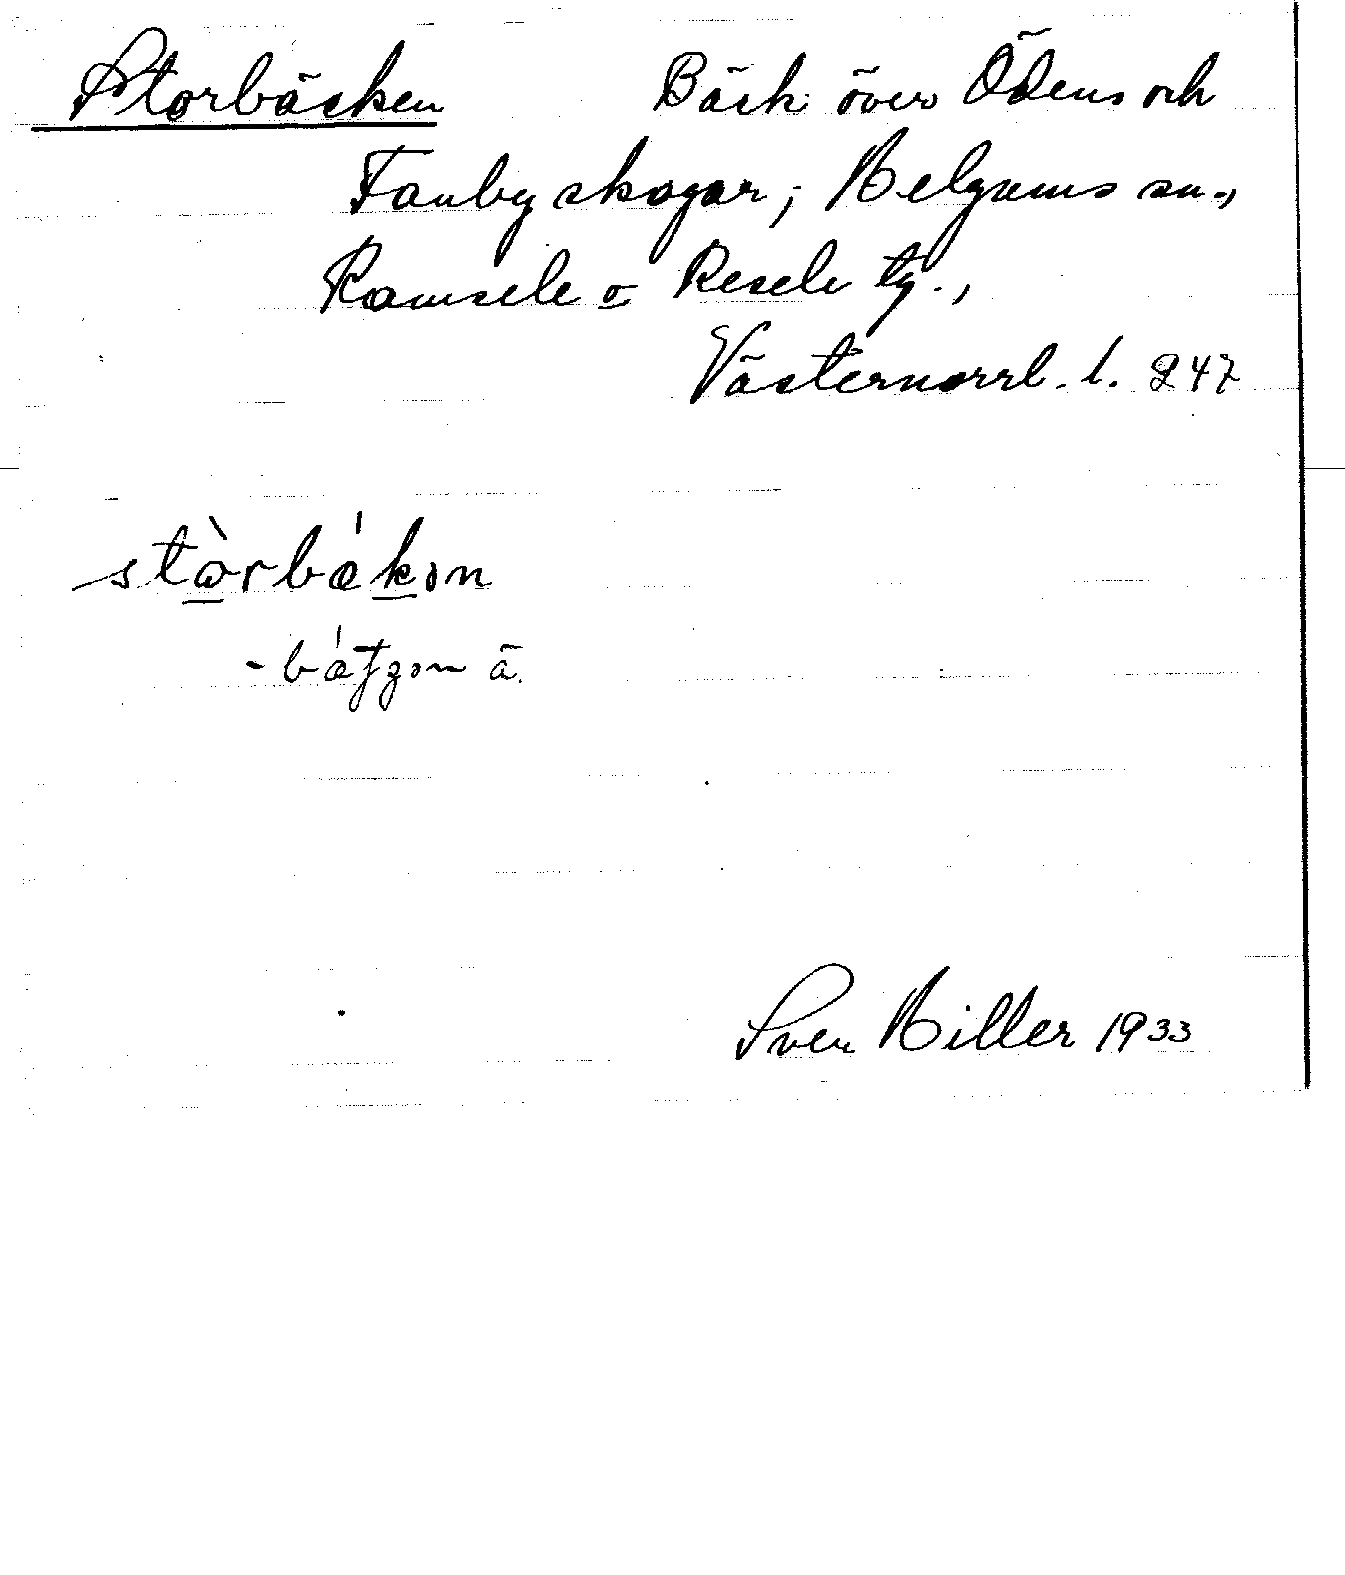 Storbäcken Bäck över Ödens och
Fanby skogar; Helgums sn.,
Ramsele o Resele tg.,
Västernorrl. l. 247
stòrbákən
-bátʒən ä.
Sven Hiller 1933